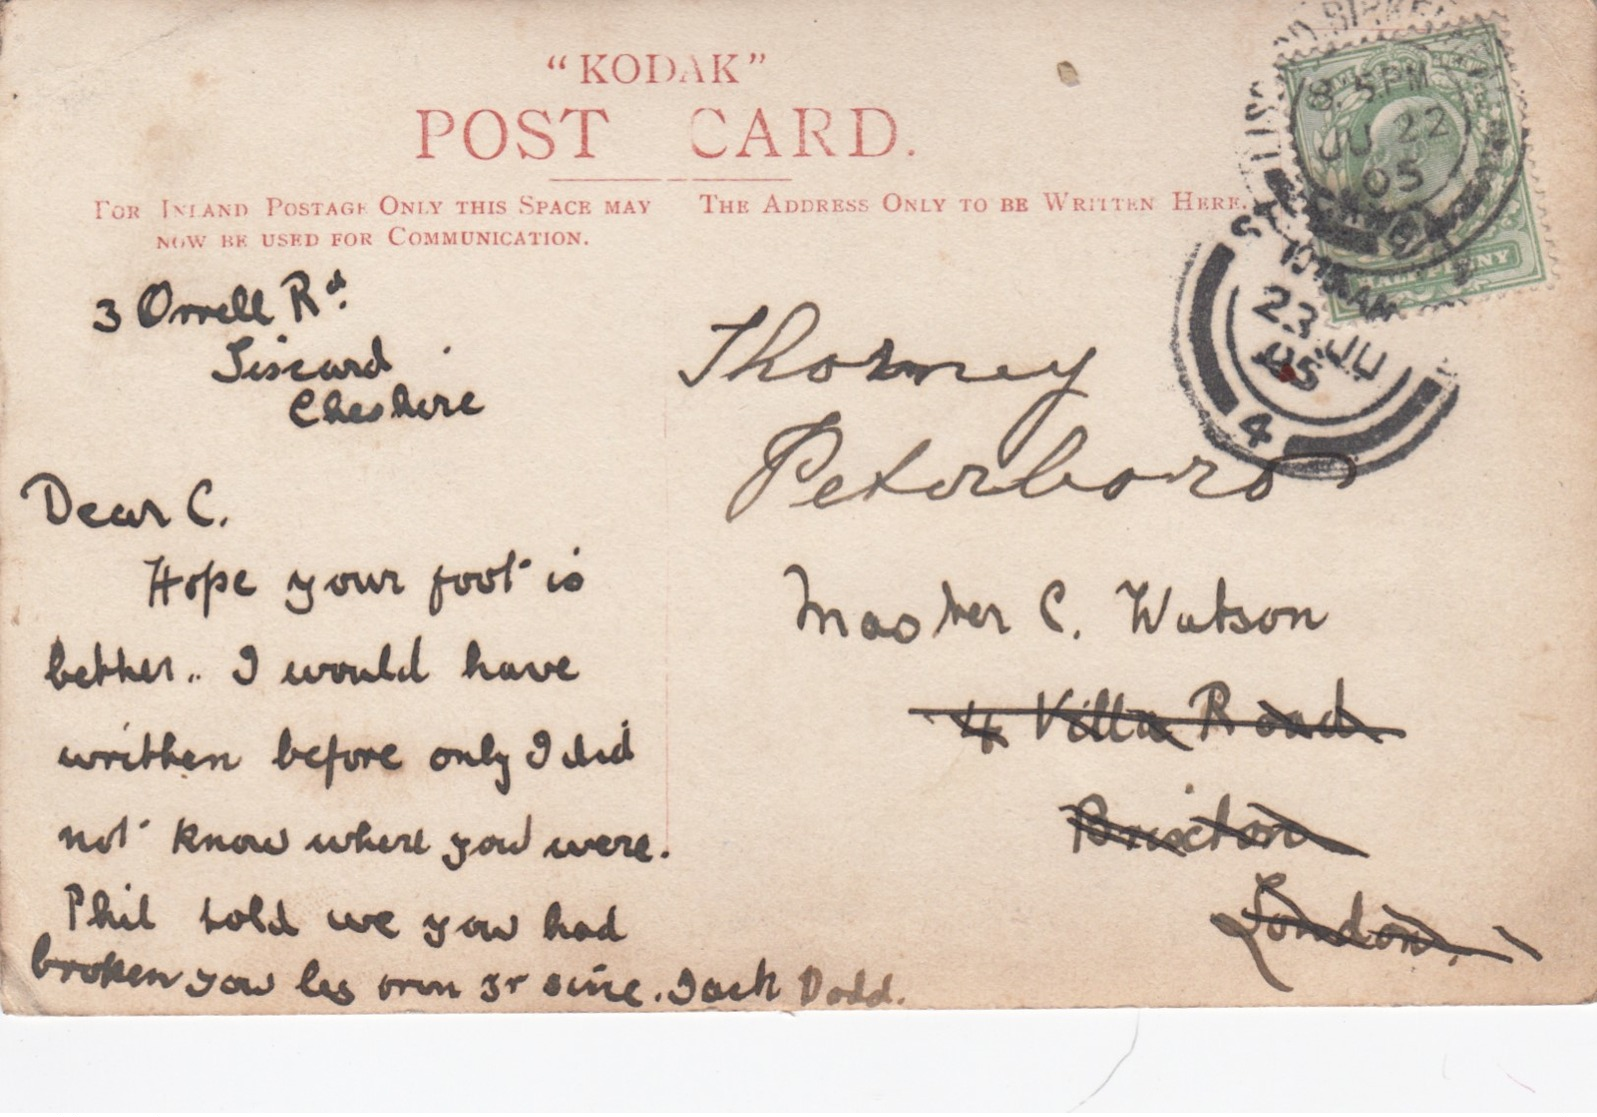 "KODAK"
POST CARD.
FOR INLAND POSTAGE ONLY THIS SPACE MAY
NOW BE USED FOR COMMUNICATION.
THE ADDRESS ONLY TO BE WRITTEN HERE.
3 Orrell Rd.
Liscard
Cheshire
Dear C.
Hope your foot is
better.. I would have
written before only I did
not know where you were.
Phil told we you had
broken you leg
Jack Dodd.
Thorney
Peterboro
Master C. Watson
4 Villa Road
Brixton
London.
8.15PM
JU 22
05
23 JU
05
4